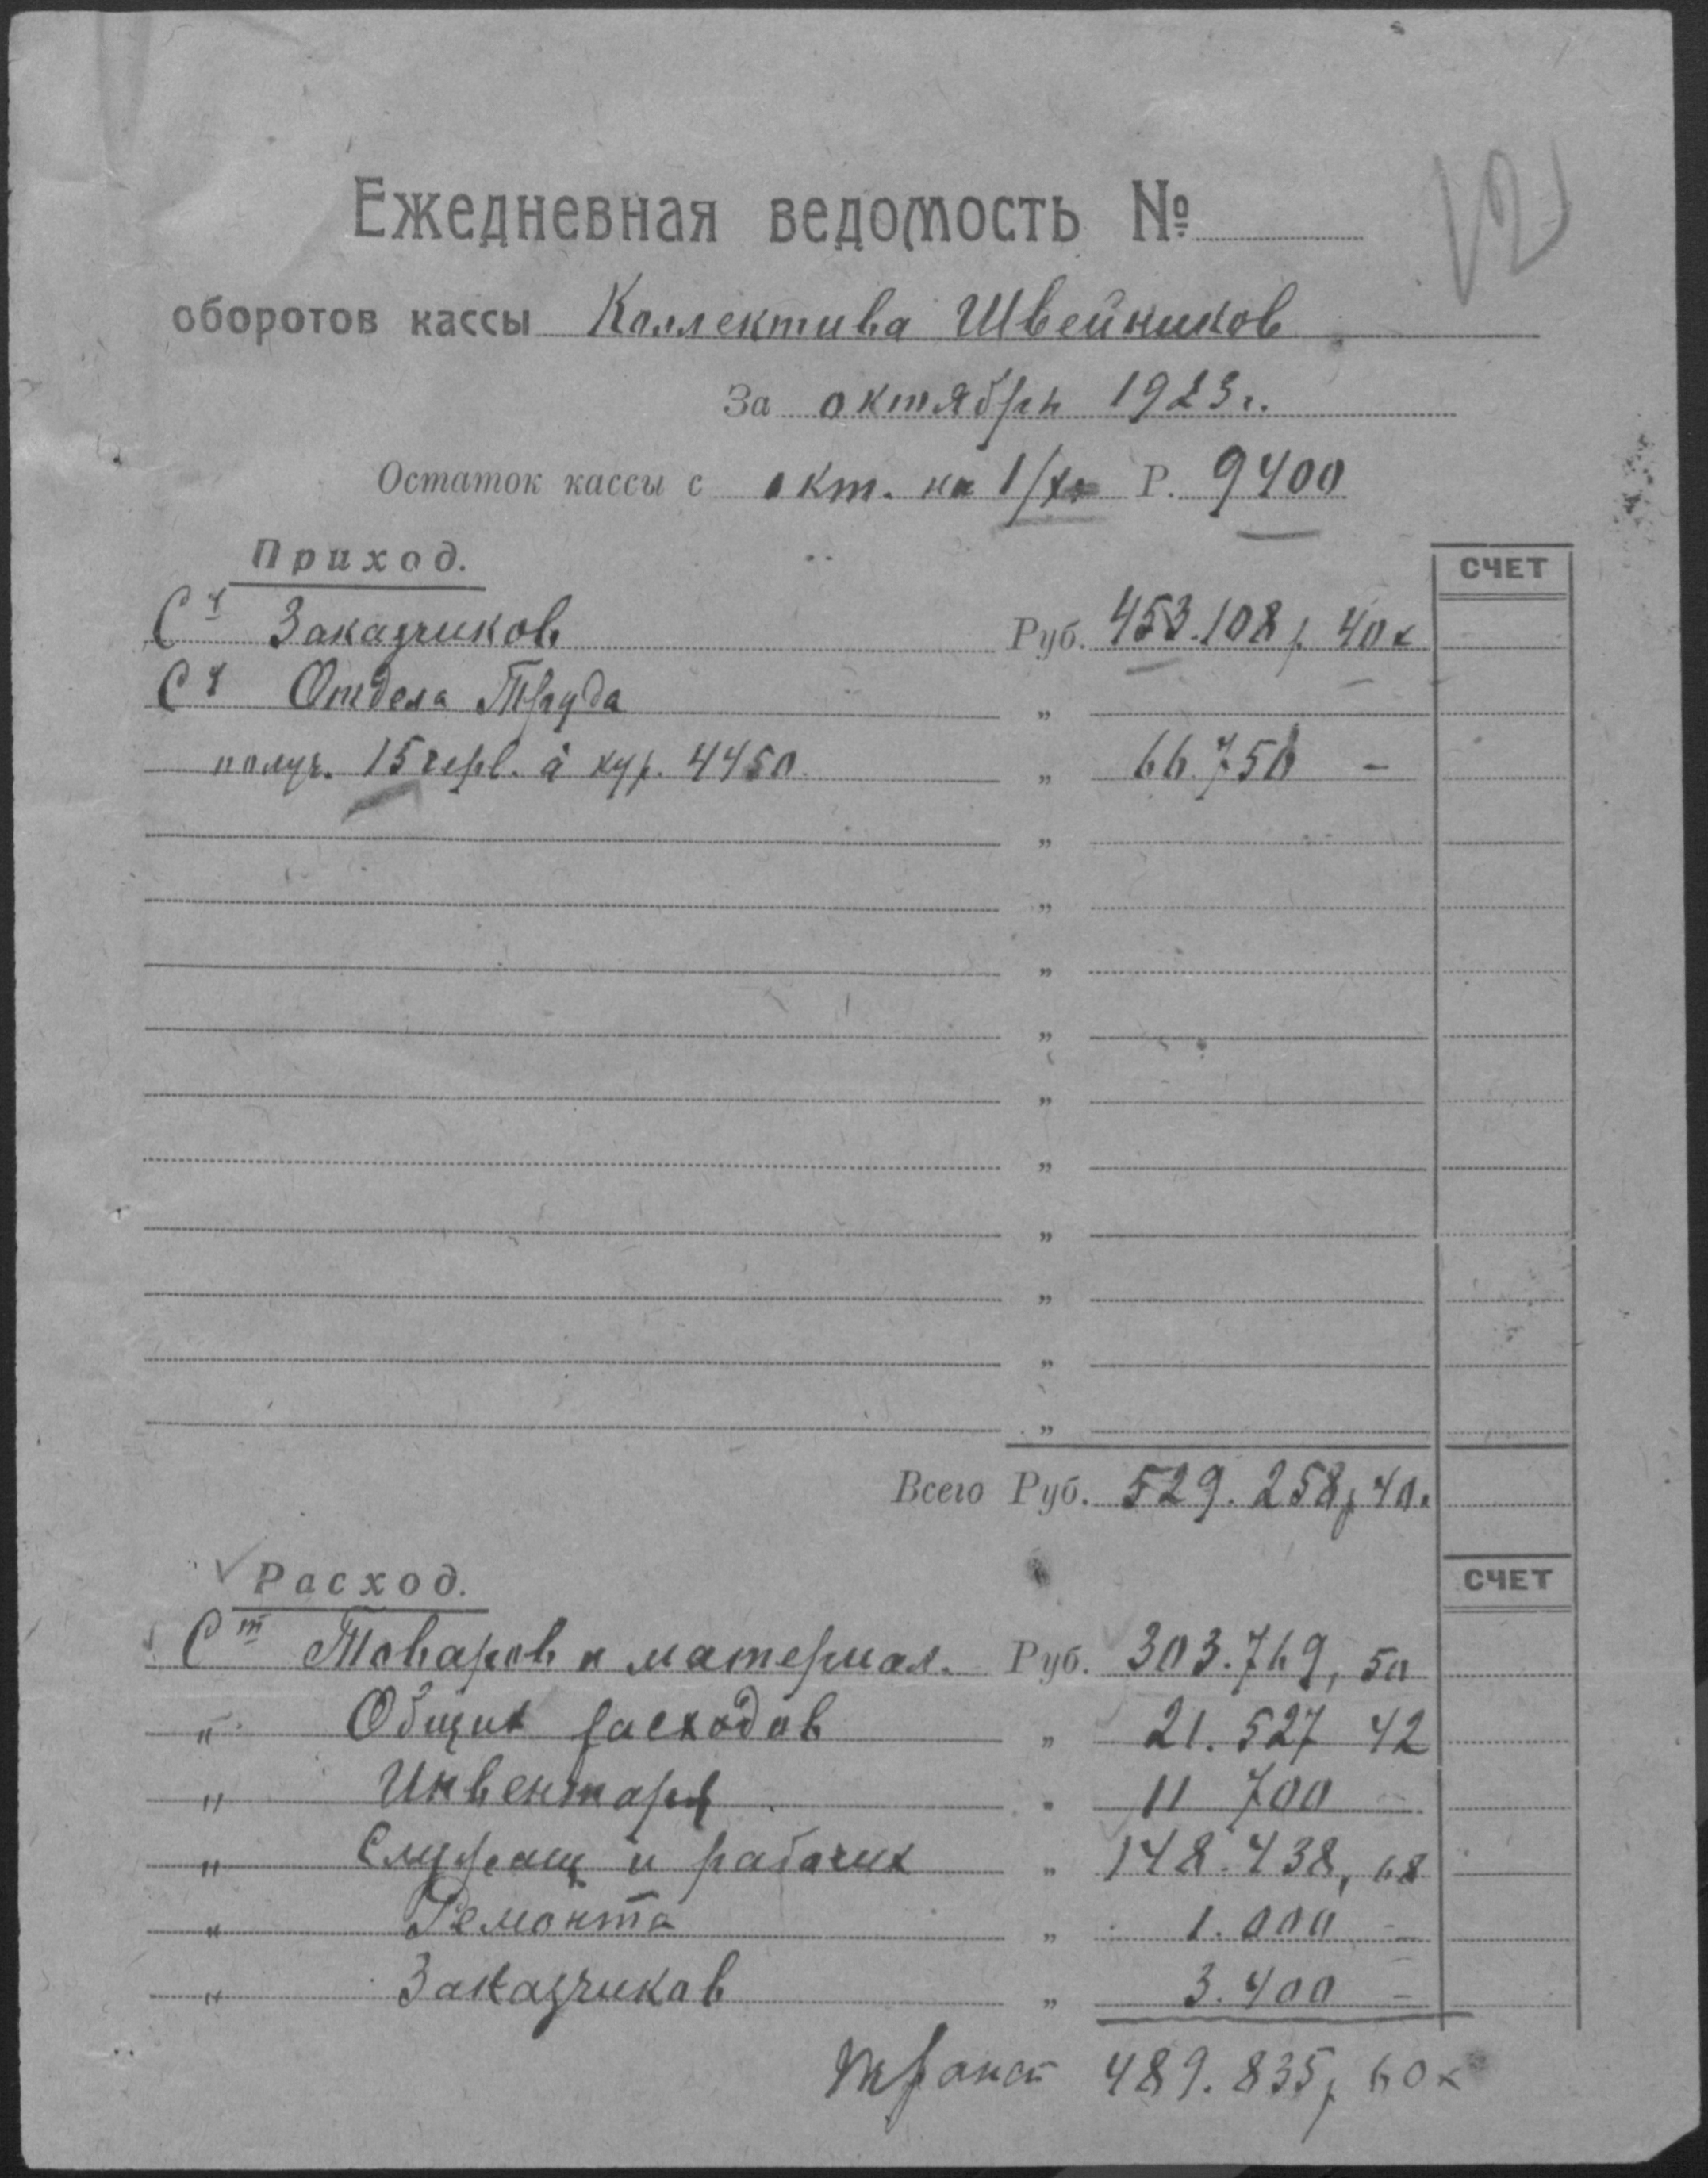 12
Ежедневная ведомость №
оборотов кассы Коллектива Швейников
За октябрь 1923 г.
Остаток кассы с окт. на 1/X Р. 9400
Приход. СЧЕТ
Сч Заказчиков Руб. 453.108 р. 40 к
Сч Отдела Труда "
получ. 15 черв. à кур. 4450 " 66.750 -
"
"
"
"
"
"
"
"
"
"
Всего Руб. 529.258 р 40.
Расход. СЧЕТ
Ст Товаров и материал. Руб. 303.769, 50
" Общих расходов " 21.527 42
" Инвентаря " 11 700 -
" Служащ и рабочих " 148.438, 68
" Ремонта " 1.000 -
" Заказчиков " 3.400 -
Трансп 489.835 р 60 к